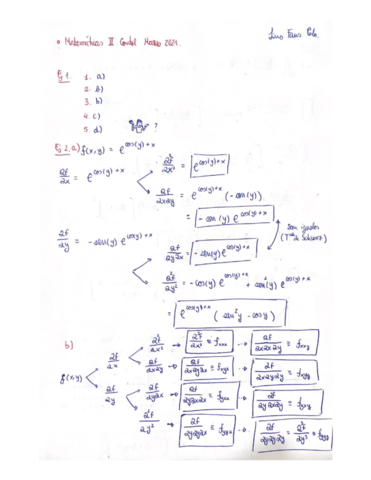 • Matemáticas II Control Marzo 2021.
Ej 1. 1. a)
2. b)
3. b)
4. c)
5. d) ?
Ej 2. a) f(x,y) = e^{cos(y)+x}
∂f/∂x = e^{cos(y)+x}
∂²f/∂x² = e^{cos(y)+x}
∂f/∂x∂y = e^{cos(y)+x} (-sen(y))
= -sen(y) e^{cos(y)+x}
son iguales
∂f/∂y = -sen(y) e^{cos(y)+x}
∂f/∂y∂x = -sen(y) e^{cos(y)+x}
∂²f/∂y² = -cos(y) e^{cos(y)+x} + sen²(y) e^{cos(y)+x}
= e^{cosy+x} (sen²y - cosy)
b)
f(x,y)
∂f/∂x
∂²f/∂x² → ∂³f/∂x³ = f_{xxx} → ∂f/∂x∂x∂y = f_{xxy}
∂f/∂x∂y → ∂f/∂x∂y∂x = f_{xyx} → ∂f/∂x∂y∂y = f_{xyy}
∂f/∂y
∂f/∂y∂x → ∂f/∂y∂x∂x = f_{yxx} → ∂f/∂y∂x∂y = f_{yxy}
∂²f/∂y² → ∂f/∂y∂y∂x = f_{yyx} → ∂f/∂y∂y∂y = ∂³f/∂y³ = f_{yyy}